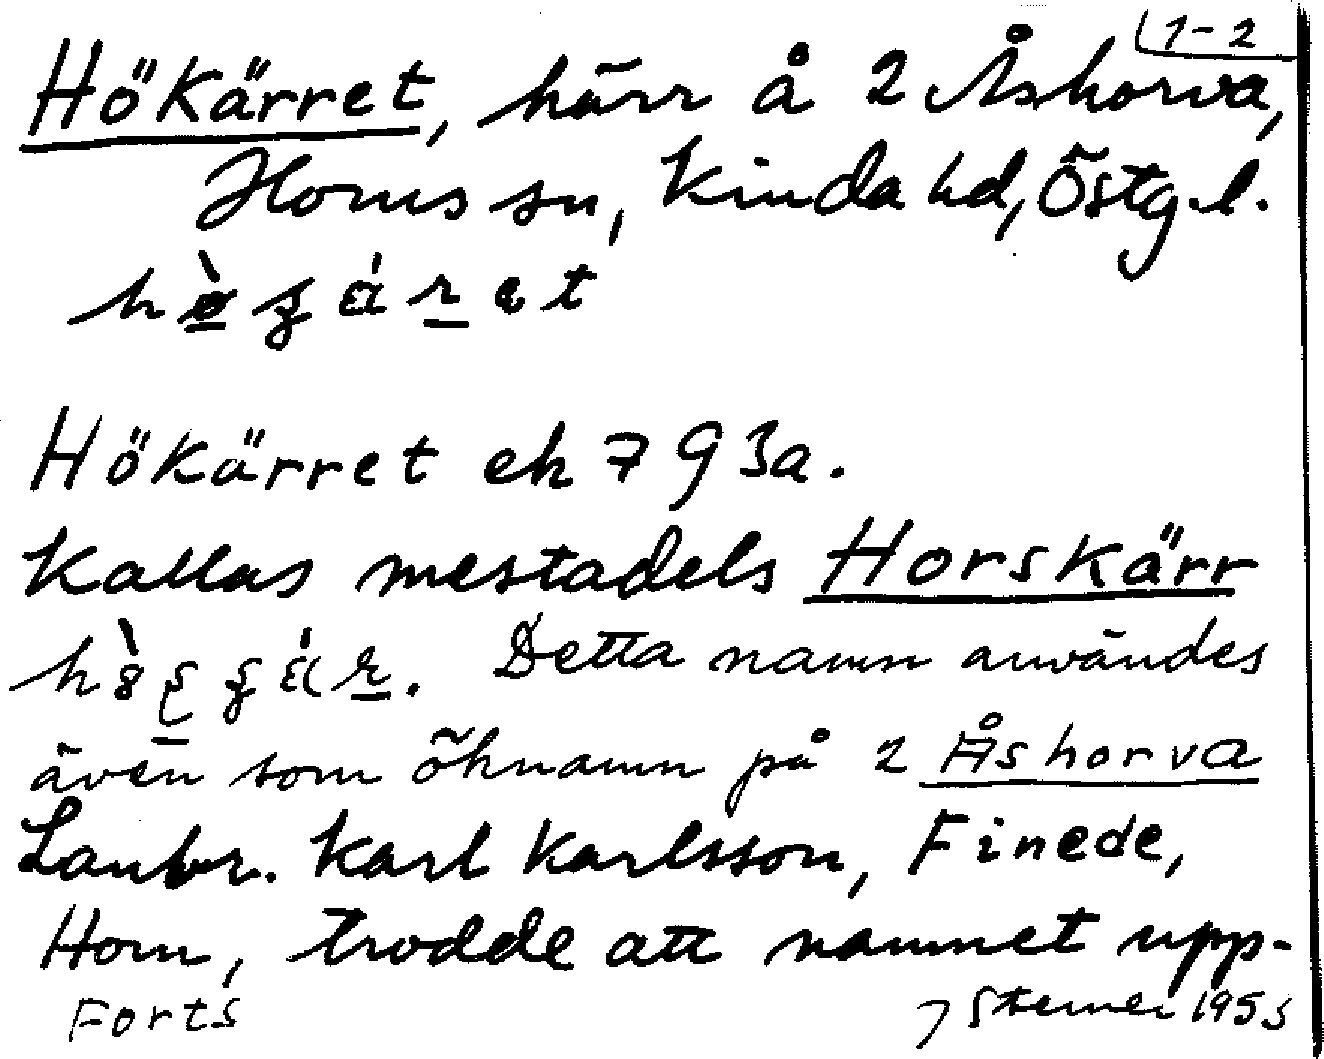 1-2
Hökärret, kärr å 2 Åshorva,
Horns sn, Kinda hd, Östg.l.
Hökärret ek 7 9 3a.
Kallas mestadels Horskärr
Detta namn användes
även som öknamn på 2 Åshorva
Lantbr. Karl Karlsson, Finede,
Horn, trodde att namnet upp-
Forts
1955